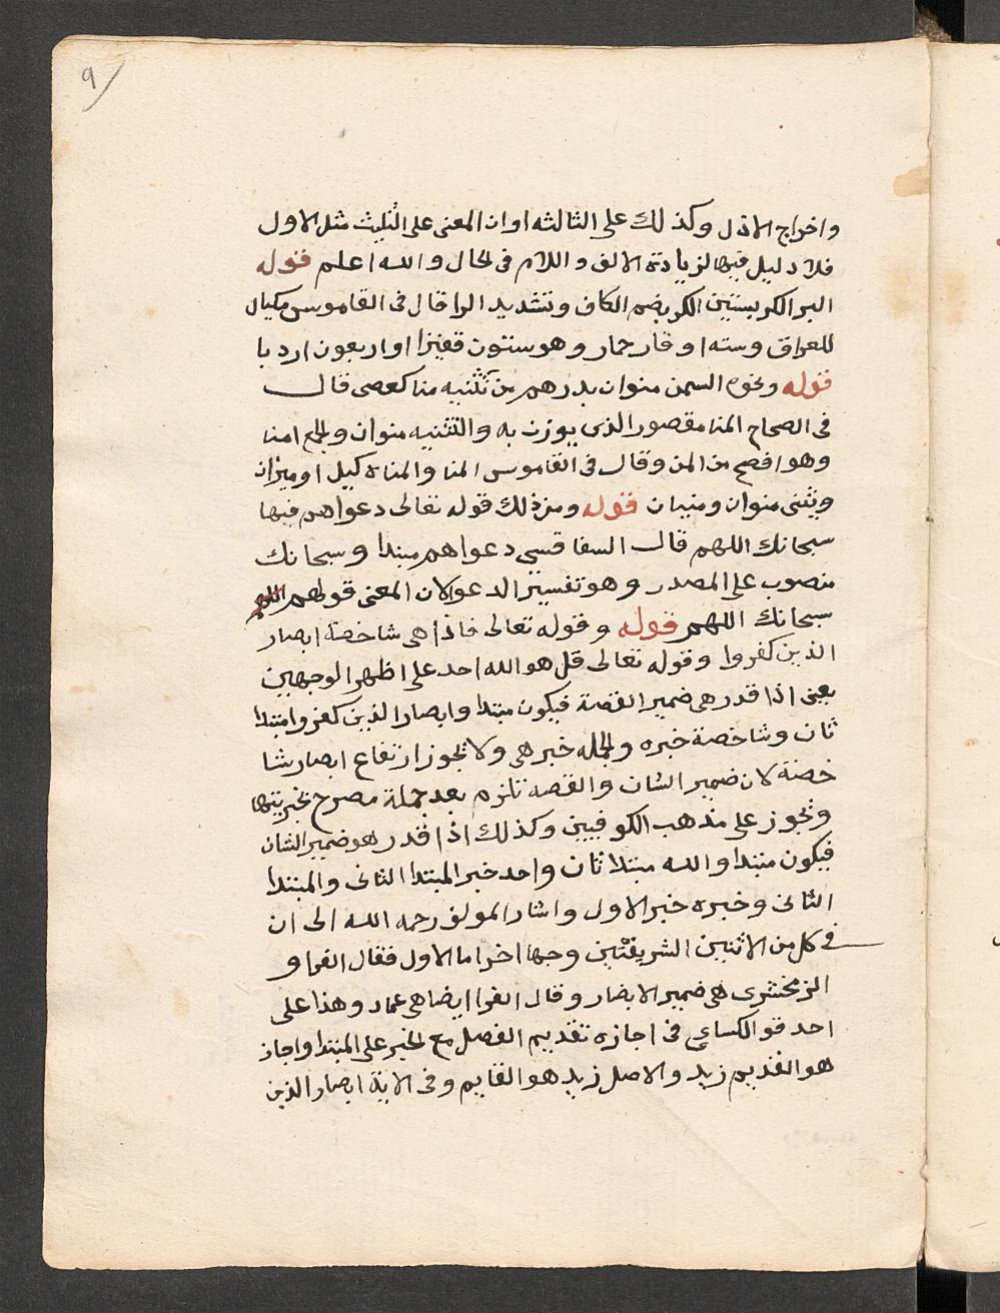 ٩
واخراج الاذل وكذلك على الثالثه اوان المعنى على الثليث مثل الاول
فلا دليل فيها لزيادة الالف واللام فى الحال والله اعلم قوله
البر الكر بستين الكر بضم الكاف وتشديد الرا قال فى القاموس مكيال
للعراق وسته اوقار حمار وهو ستون قفيزا او اربعون اردبا
قوله ونحوه السمن منوان بدرهم من تثنيه منا كعصى قال
فى الصحاح المنا مقصور الذى يوزن به والتثنيه منوان والجمع امنا
وهو افصح من المن وقال فى القاموس المنا والمناه كيل او ميزان
ويثنى منوان ومنيان قوله ومن ذلك قوله تعالى دعواهم فيها
سبحانك اللهم قال السفاقسى دعواهم مبتدا وسبحانك
منصوب على المصدر وهو تفسير الدعوا لان المعنى قولهم اللهم
سبحانك اللهم قوله وقوله تعالى فاذا هى شاخصة ابصار
الذين كفروا وقوله تعالى قل هو الله احد على اظهر الوجهين
يعنى اذا قدر هى ضمير القصة فيكون مبتدا وابصار الذين كفروا مبتدا
ثان وشاخصة خبره والجمله خبر هى ولا يجوز ارتفاع ابصار بشا
خصة لان ضمير الشان والقصه تلزم بعد جملة مصرح بخبريتها
ويجوز على مذهب الكوفيين وكذلك اذا قدر هو ضمير الشان
فيكون مبتدا والله مبتدا ثان واحد خبر المبتدا الثانى والمبتدا
الثانى وخبره خبر الاول واشار المولف رحمه الله الى ان
فى كل من الاثنين الشريفتين وجها اخر اما الاول فقال الفرا و
الزمخشرى هى ضمير الابصار وقال الفرا ايضا هى عماد وهذا على
احد قو الكساى فى اجازه تقديم الفصل مع الخبر على المبتدا واجاز
هو القديم زيد والاصل زيد هو القايم وفى الاية ابصار الذين